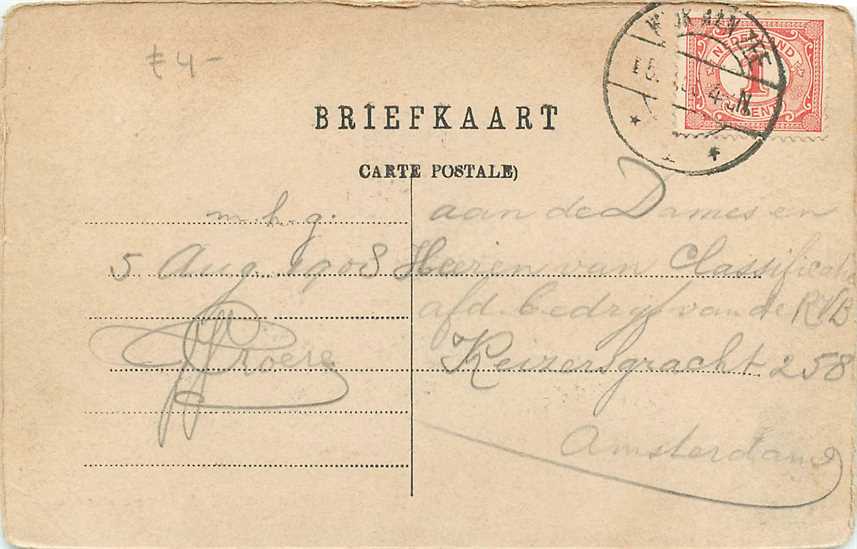 £ 4-
WIJK AAN ZEE
NEDERLAND
1
CENT
BRIEFKAART
CARTE POSTALE)
m.h.g.
5 Aug. 1908
aan de Dames en
Heeren van Classificatie
afd. bedrijf van de RVB
Keizersgracht 258
Amsterdam